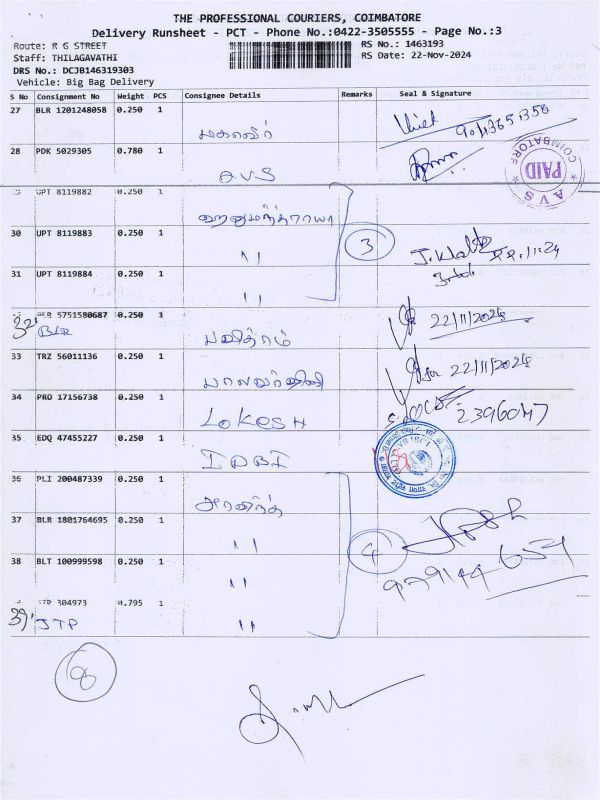 THE PROFESSIONAL COURIERS, COIMBATORE
Delivery Runsheet - PCT - Phone No.:0422-3505555 - Page No.:3
Route: R G STREET
RS No.: 1463193
Staff: THILAGAVATHI
RS Date: 22-Nov-2024
DRS No.: DCJB146319303
Vehicle: Big Bag Delivery
S No Consignment No Weight PCS Consignee Details Remarks Seal & Signature
27 BLR 1201248058 0.250 1
மகாவீர்
28 PDK 5029305 0.780 1
A.V.S
COIMBATORE
PAID
A V S
UPT 8119882 0.250 1
ஹனுமந்தராயா
3
30 UPT 8119883 0.250 1
"
31 UPT 8119884 0.250 1
"
32 BLR 5751580687 0.250 1
BLR
பவித்ரம்
22/11/2024
33 TRZ 56011136 0.250 1
22/11/2024
34 PRO 17156738 0.250 1
LOKESH
2396047
35 EDQ 47455227 0.250 1
IDBI
36 PLI 200487339 0.250 1
அரவிந்த்
37 BLR 1801764695 0.250 1
"
4
38 BLT 100999598 0.250 1
"
39 JTP 304973 0.795 1
JTP
"
8